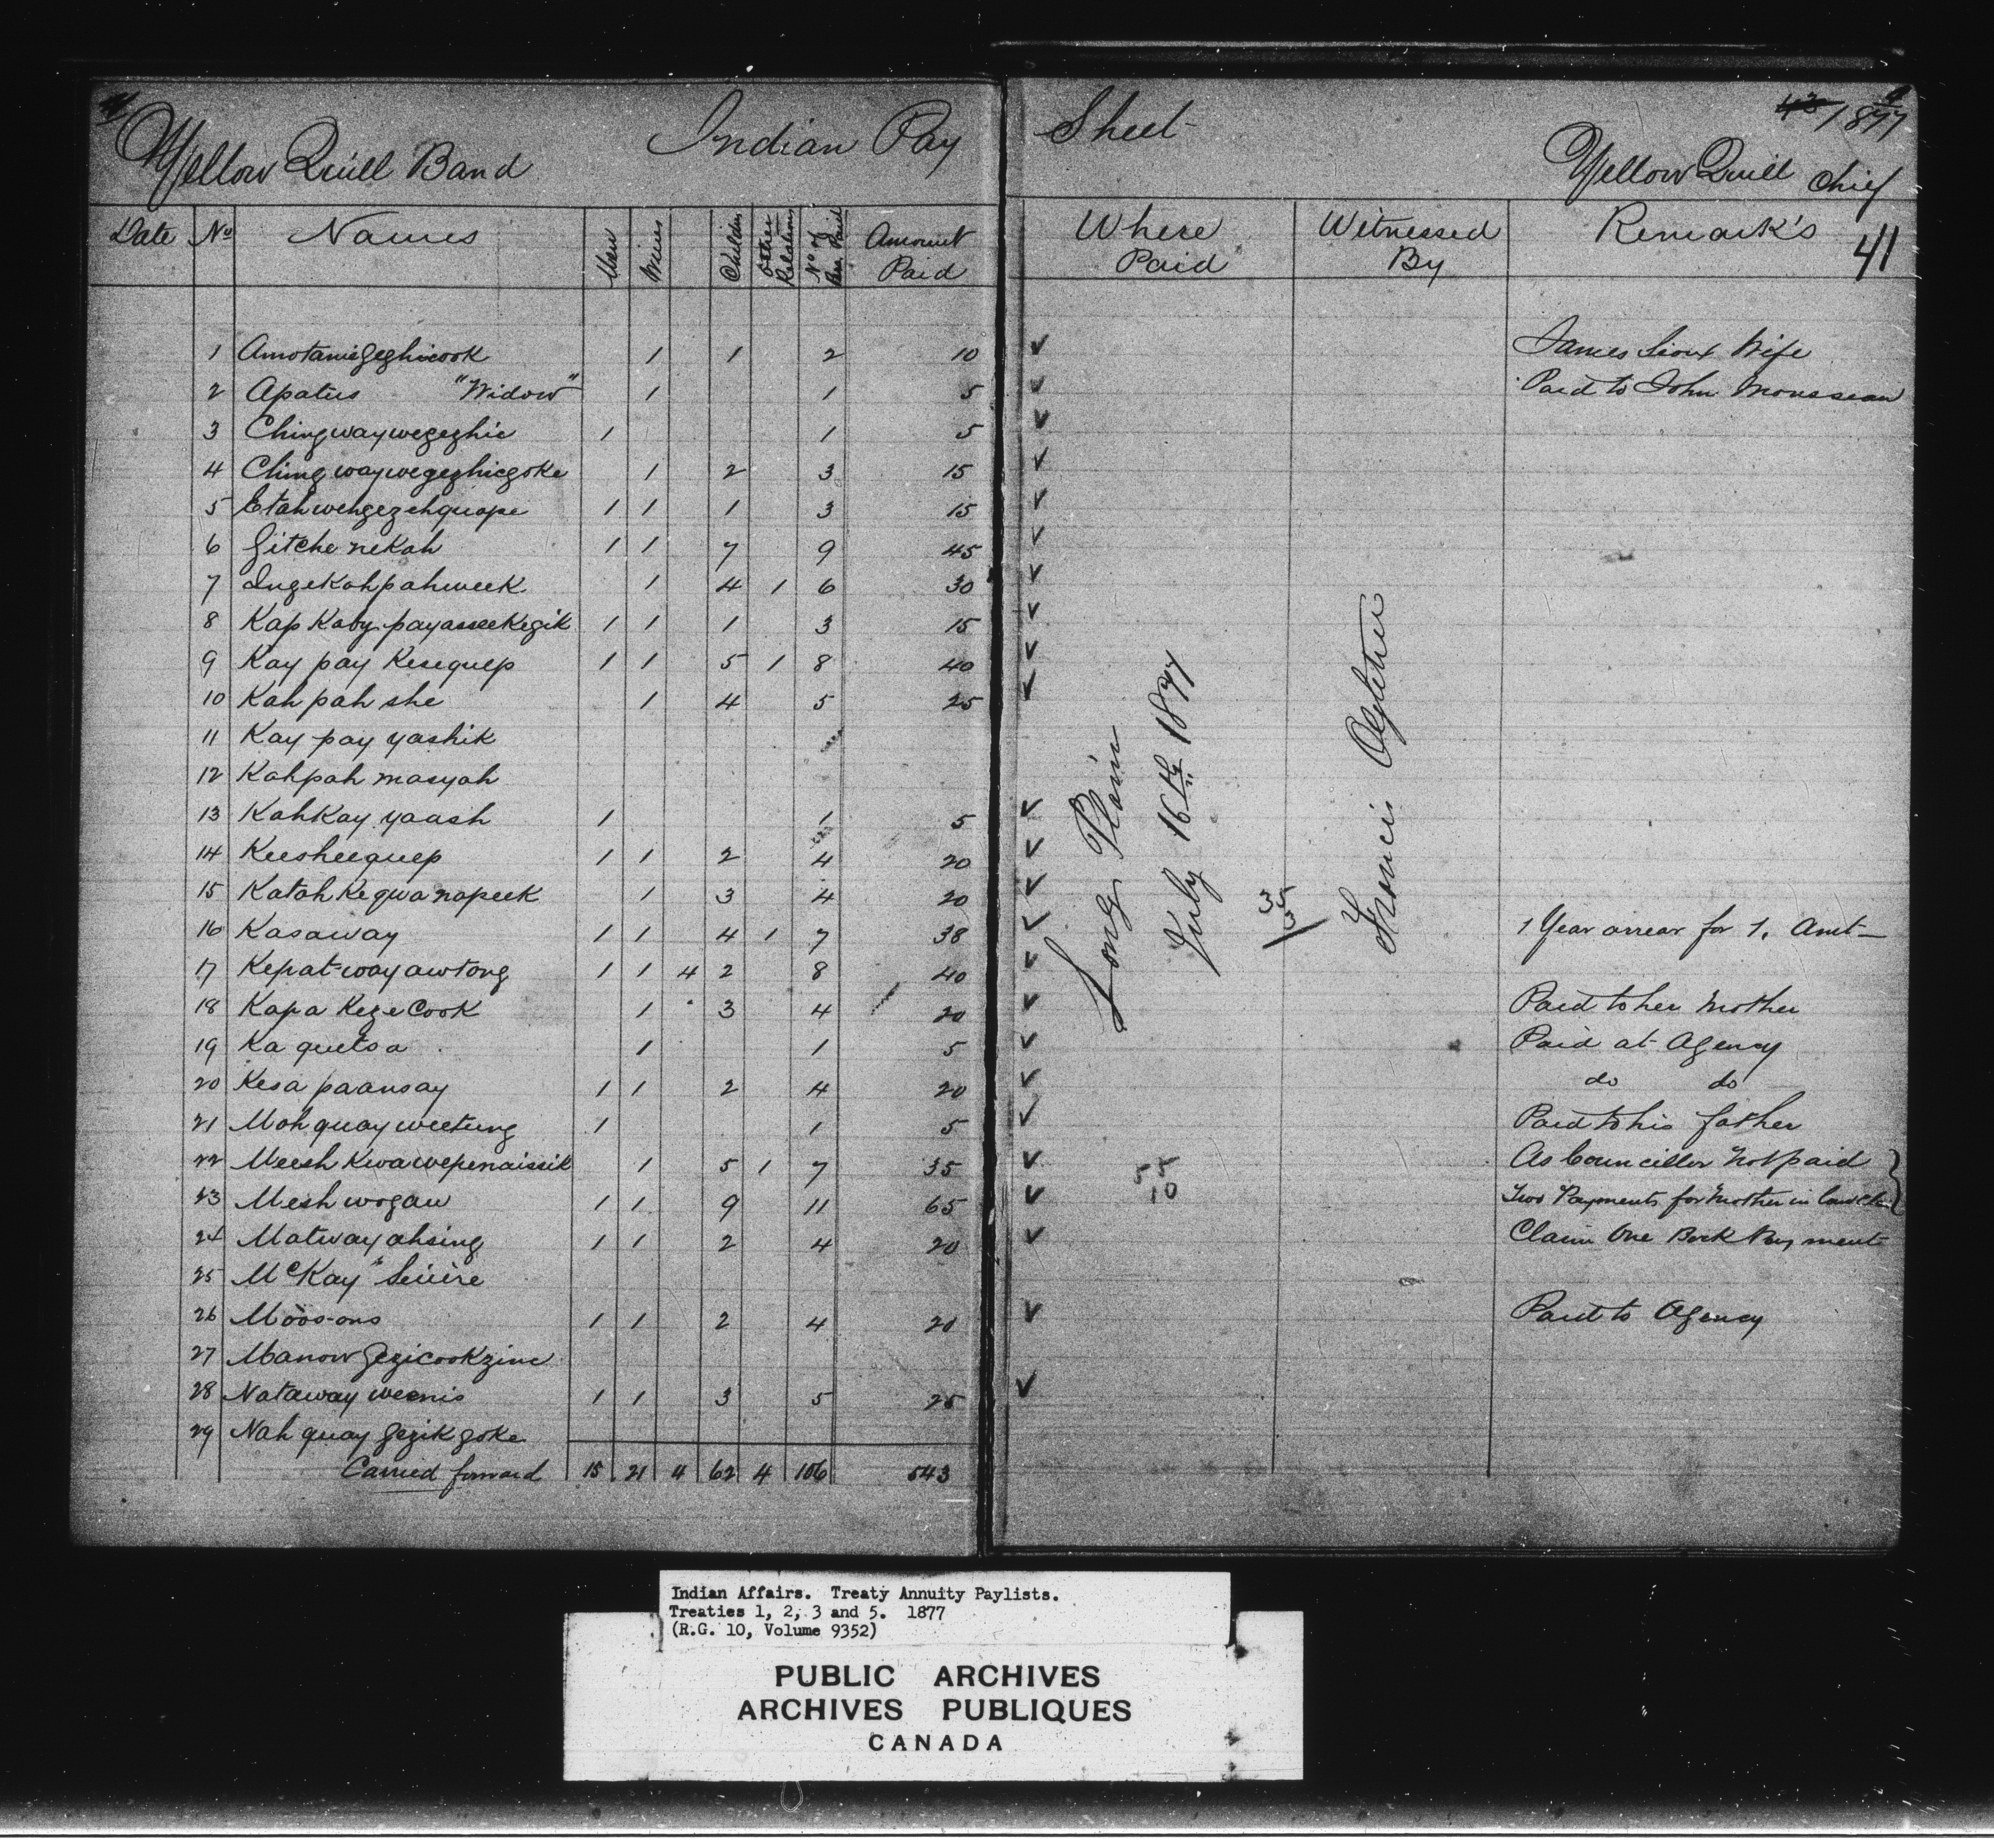 Yellow Quill Band Indian Pay Sheet 1877
Yellow Quill Chief
41
Date No Names Men Wives Children Other Relations No of Paid Amount Paid Where Paid Witnessed By Remark's
1 1 1 2 10 ✓ James Sioux Wife
2 Apatus "Widow" 1 1 5 ✓ Paid to John Mousseau
3 Chingwaywegezhic 1 1 5 ✓
4 Chingwaywegezhicgoke 1 2 3 15 ✓
5 Etahwehgezehquape 1 1 1 3 15 ✓
6 Gitche nekah 1 1 7 9 45 ✓
7 Ingekahpahweek 1 4 1 6 30 ✓
8 Kap Kaby payasseekegik 1 1 1 3 15 ✓
9 Kay pay Kesequep 1 1 5 1 8 40 ✓
10 Kah pah she 1 4 5 25 ✓
11 Kay pay yashik
12 Kahpah masyah
13 KahKay yaash 1 1 5 ✓
14 Keesheequep 1 1 2 4 20 ✓
15 Katah Keqwa napeek 1 3 4 20 ✓
16 Kasaway 1 1 4 1 7 38 ✓ 1 Year arrear for 1. Amt
17 Kepat-way awtong 1 1 4 2 8 40 ✓
18 Kapa KezeCook 1 3 4 20 ✓ Paid to her Mother
19 Ka quetsa 1 1 5 ✓ Paid at Agency
20 Kesa paansay 1 1 2 4 20 ✓ do do
21 Mah quay weetung 1 1 5 ✓ Paid to his father
22 Meesh Kwawepenaissik 1 5 1 7 35 ✓ As Councillor not paid
23 Mesh wogau 1 1 9 11 65 ✓ Two Payments for Mother in law
24 Matway ahsing 1 1 2 4 20 ✓ Claim One Back Payment
25 McKay
26 Moos-ons 1 1 2 4 20 ✓ Paid to Agency
27 Manow Gezicookzine
28 Nataway weenis 1 1 3 5 25 ✓
29 Nah quay Gezik goke
Carried forward 15 21 4 62 4 106 543
Long Plain
July 16th 1877
35
3
Francis Ogletree
55
10
Indian Affairs. Treaty Annuity Paylists.
Treaties 1, 2, 3 and 5. 1877
(R.G. 10, Volume 9352)
PUBLIC ARCHIVES
ARCHIVES PUBLIQUES
CANADA